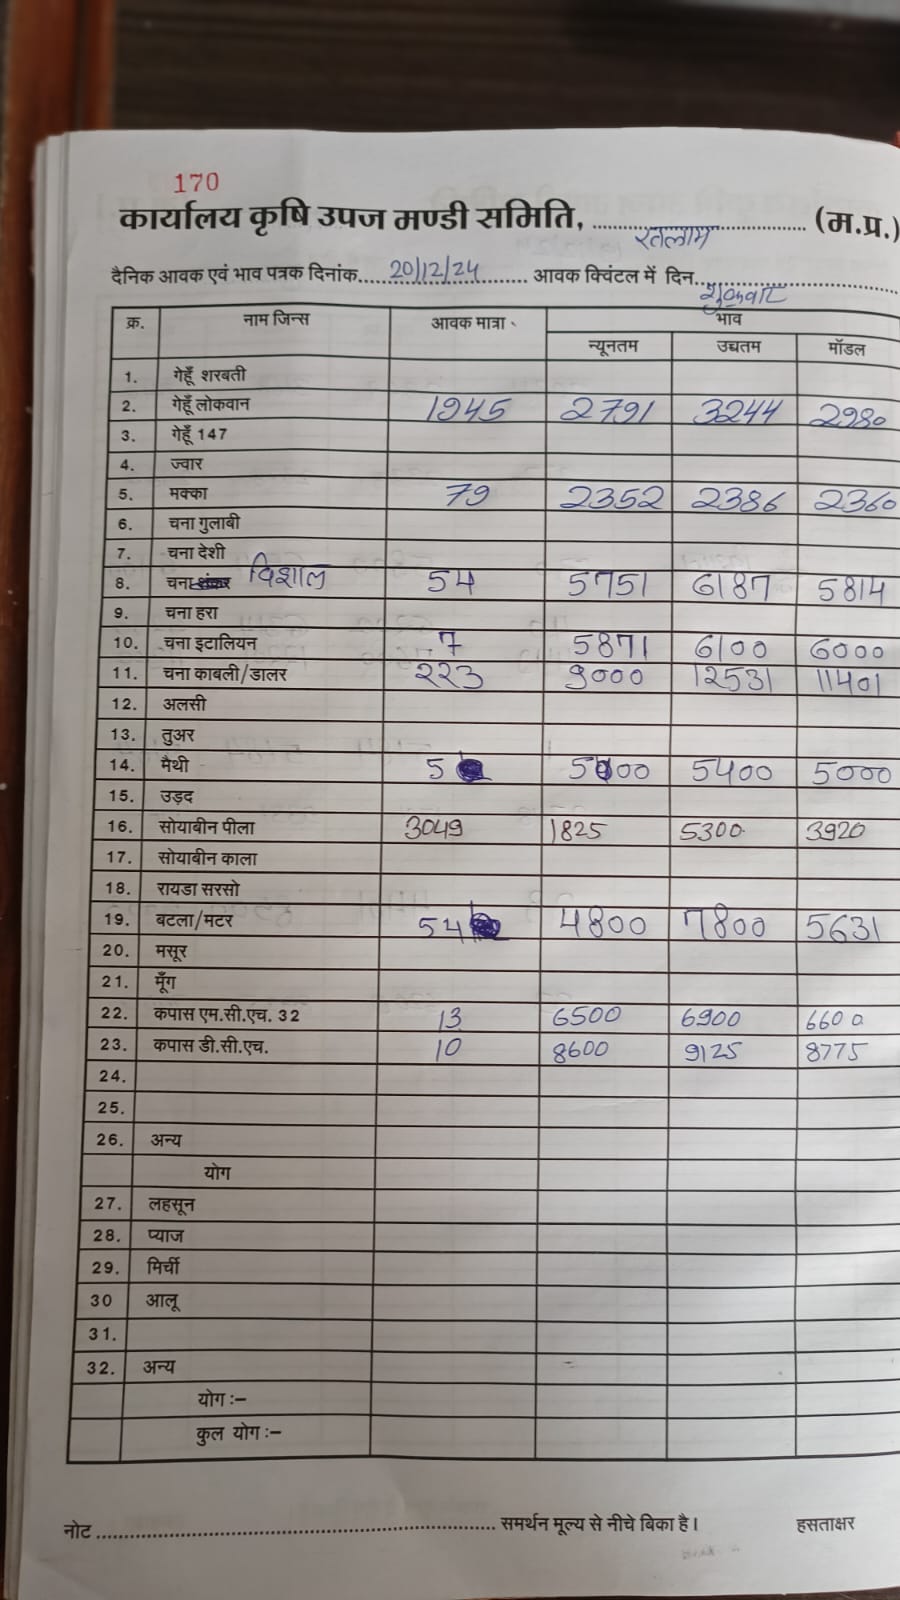 170
कार्यालय कृषि उपज मण्डी समिति, रतलाम (म.प्र.)
दैनिक आवक एवं भाव पत्रक दिनांक 20/12/24 आवक क्विंटल में दिन शुक्रवार
क्र. नाम जिन्स आवक मात्रा भाव
न्यूनतम उच्चतम मॉडल
1. गेहूँ शरबती
2. गेहूँ लोकवान 1945 2791 3244 2980
3. गेहूँ 147
4. ज्वार
5. मक्का 79 2352 2386 2360
6. चना गुलाबी
7. चना देशी
8. चना विशाल 54 5751 6187 5814
9. चना हरा
10. चना इटालियन 7 5871 6100 6000
11. चना काबली/डालर 223 9000 12531 11401
12. अलसी
13. तुअर
14. मैथी 5 5400 5000
15. उड़द
16. सोयाबीन पीला 3049 1825 5300 3920
17. सोयाबीन काला
18. रायडा सरसो
19. बटला/मटर 54 4800 7800 5631
20. मसूर
21. मूँग
22. कपास एम.सी.एच. 32 13 6500 6900 6600
23. कपास डी.सी.एच. 10 8600 9125 8775
24.
25.
26. अन्य
योग
27. लहसून
28. प्याज
29. मिर्ची
30 आलू
31.
32. अन्य
योग :–
कुल योग :–
नोट समर्थन मूल्य से नीचे बिका है। हसताक्षर